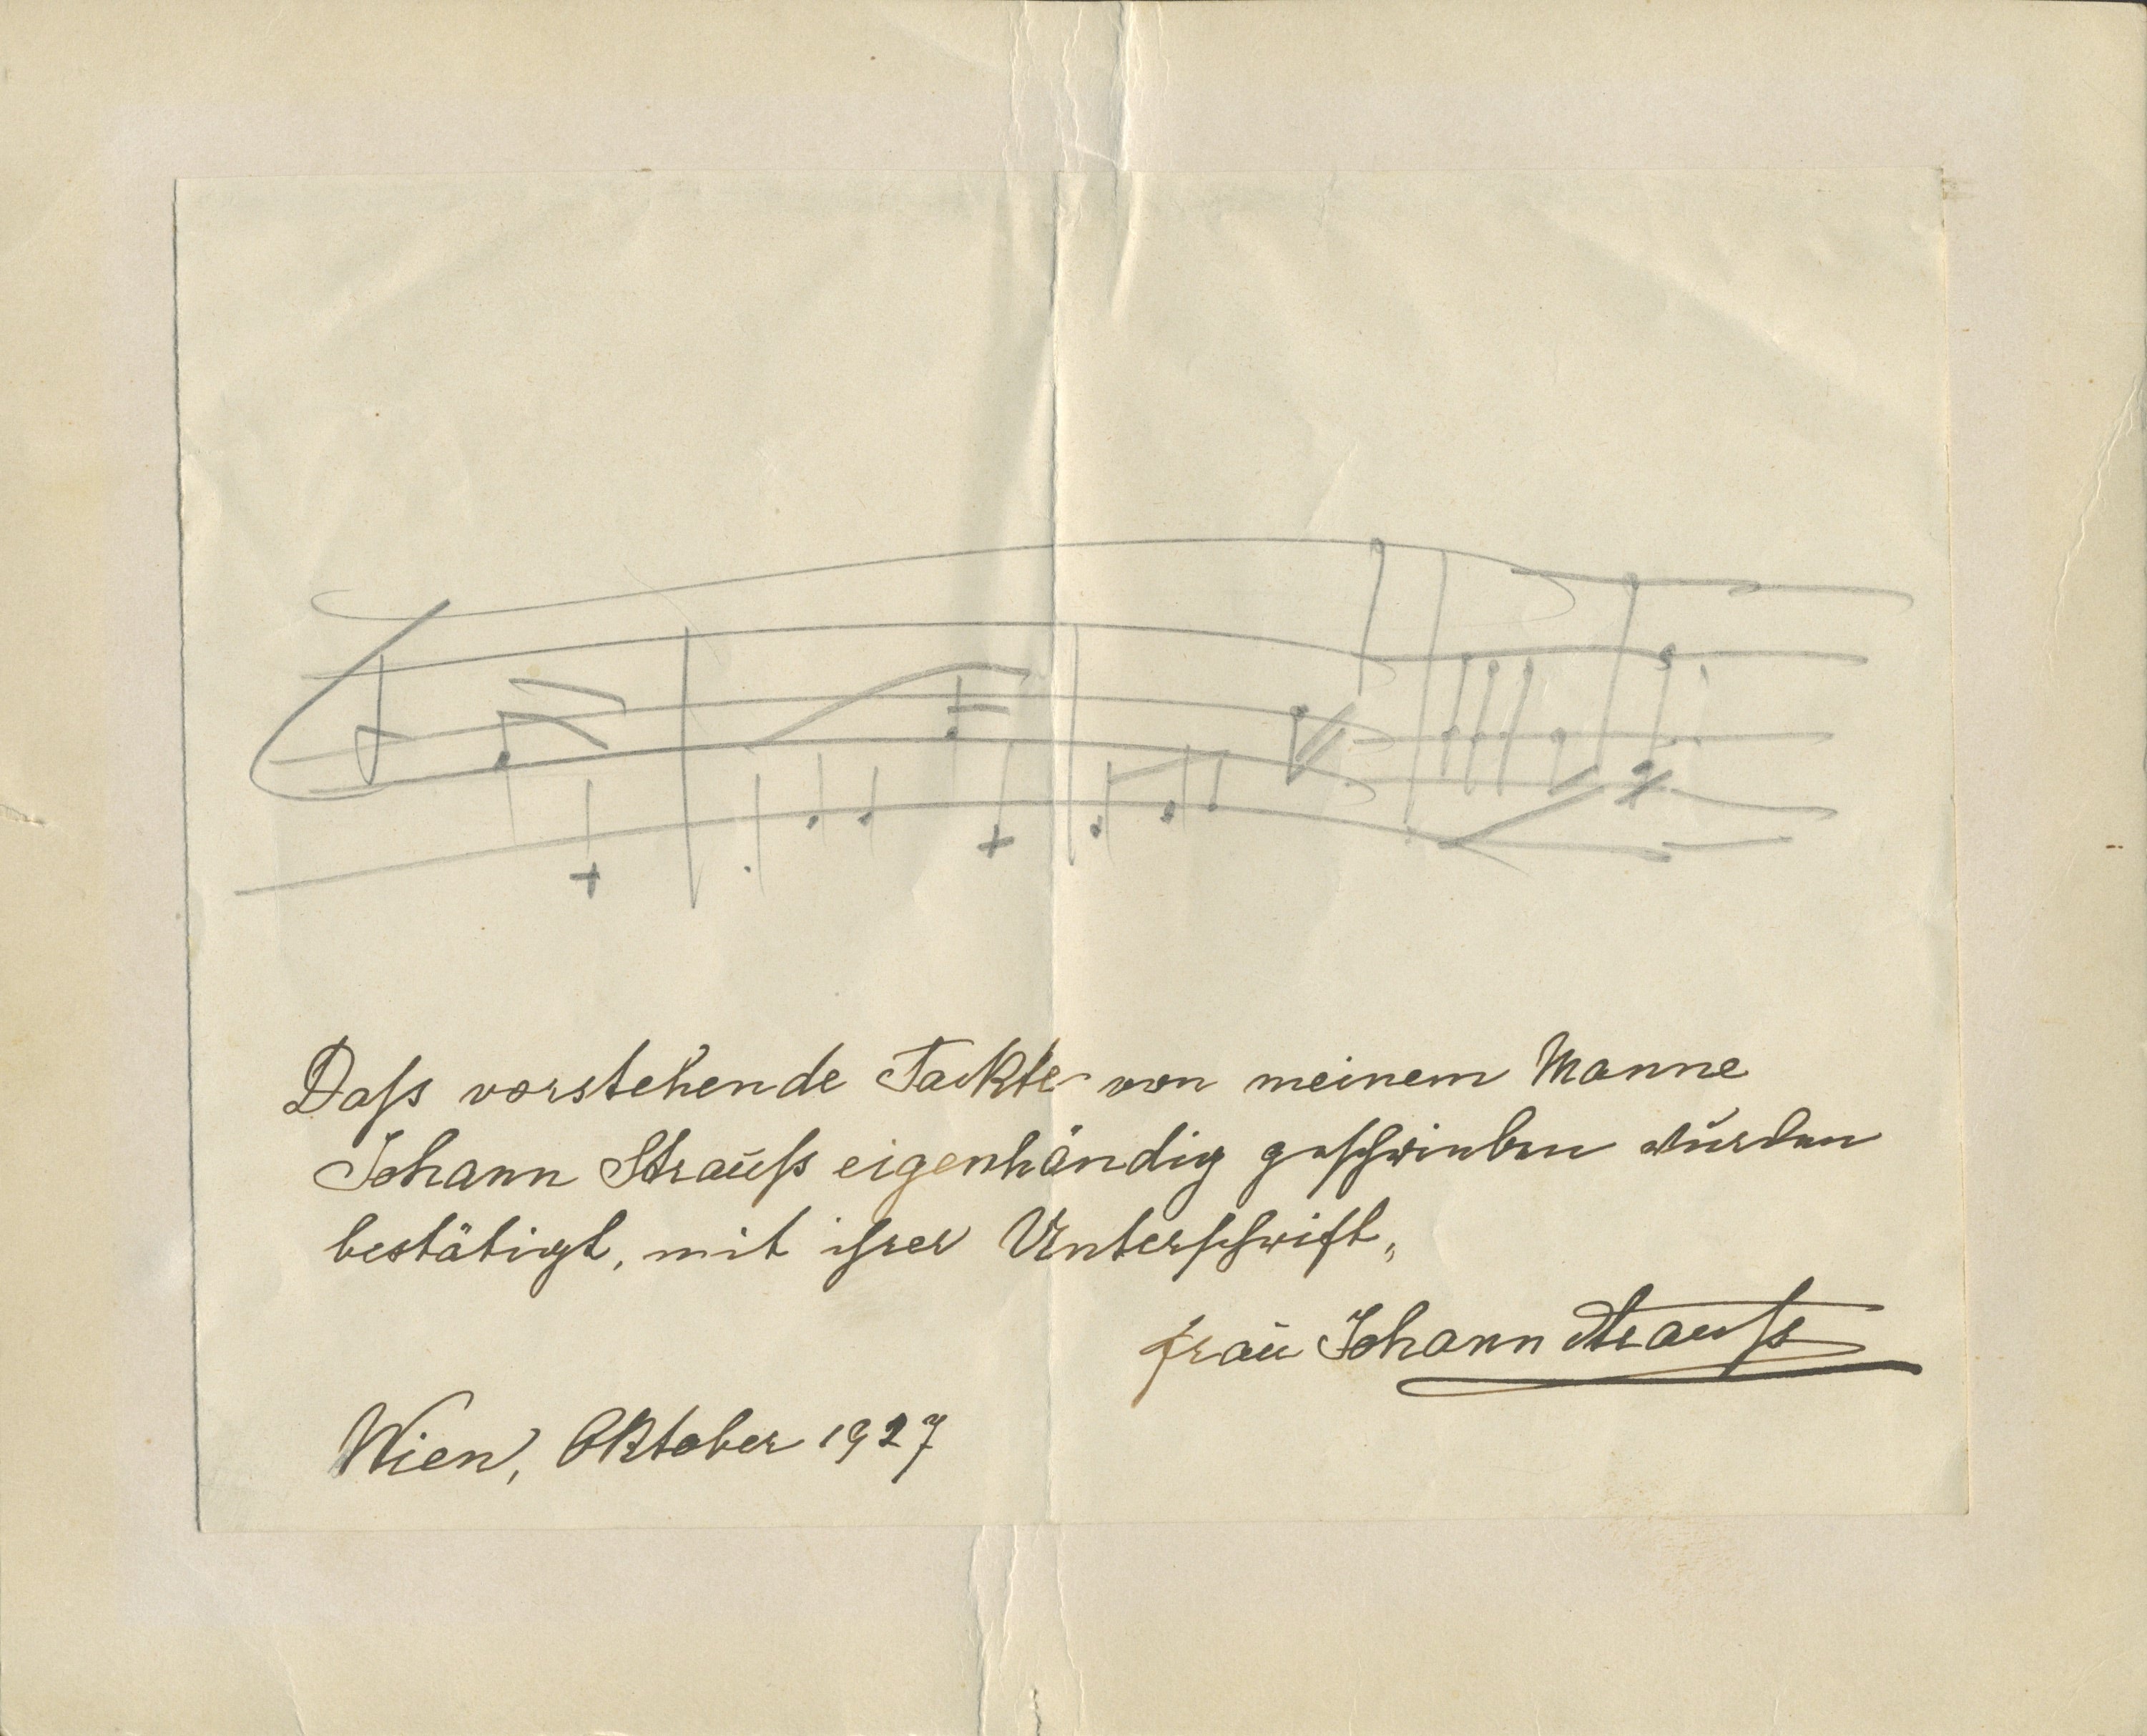 Daß vorstehende Tackte von meinem Manne
Johann Strauß eigenhändig geschrieben wurden
bestätigt, mit ihrer Unterschrift,
Frau Johann Strauß
Wien, Oktober 1927